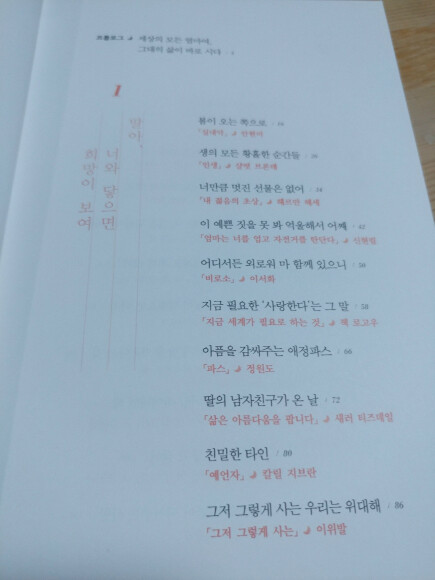 프롤로그 세상의 모든 엄마여,
그대의 삶이 바로 시다 · 5
1
딸아,
너와 닿으면
희망이 보여
봄이 오는 쪽으로
생의 모든 황홀한 순간들
「인생」
너만큼 멋진 선물은 없어
「내 젊음의 초상」 헤르만 헤세
이 예쁜 짓을 못 봐 억울해서 어째 / 42
「엄마는 너를 업고 자전거를 탄단다」 신현림
어디서든 외로워 마 함께 있으니 / 50
「바로소」 이서화
지금 필요한 '사랑한다'는 그 말 / 58
「지금 세계가 필요로 하는 것」 잭 로고우
아픔을 감싸주는 애정파스 / 66
「파스」 정원도
딸의 남자친구가 온 날 / 72
「삶은 아름다움을 팝니다」 새러 티즈데일
친밀한 타인 / 80
「예언자」 칼릴 지브란
그저 그렇게 사는 우리는 위대해 / 86
「그저 그렇게 사는」 이위발